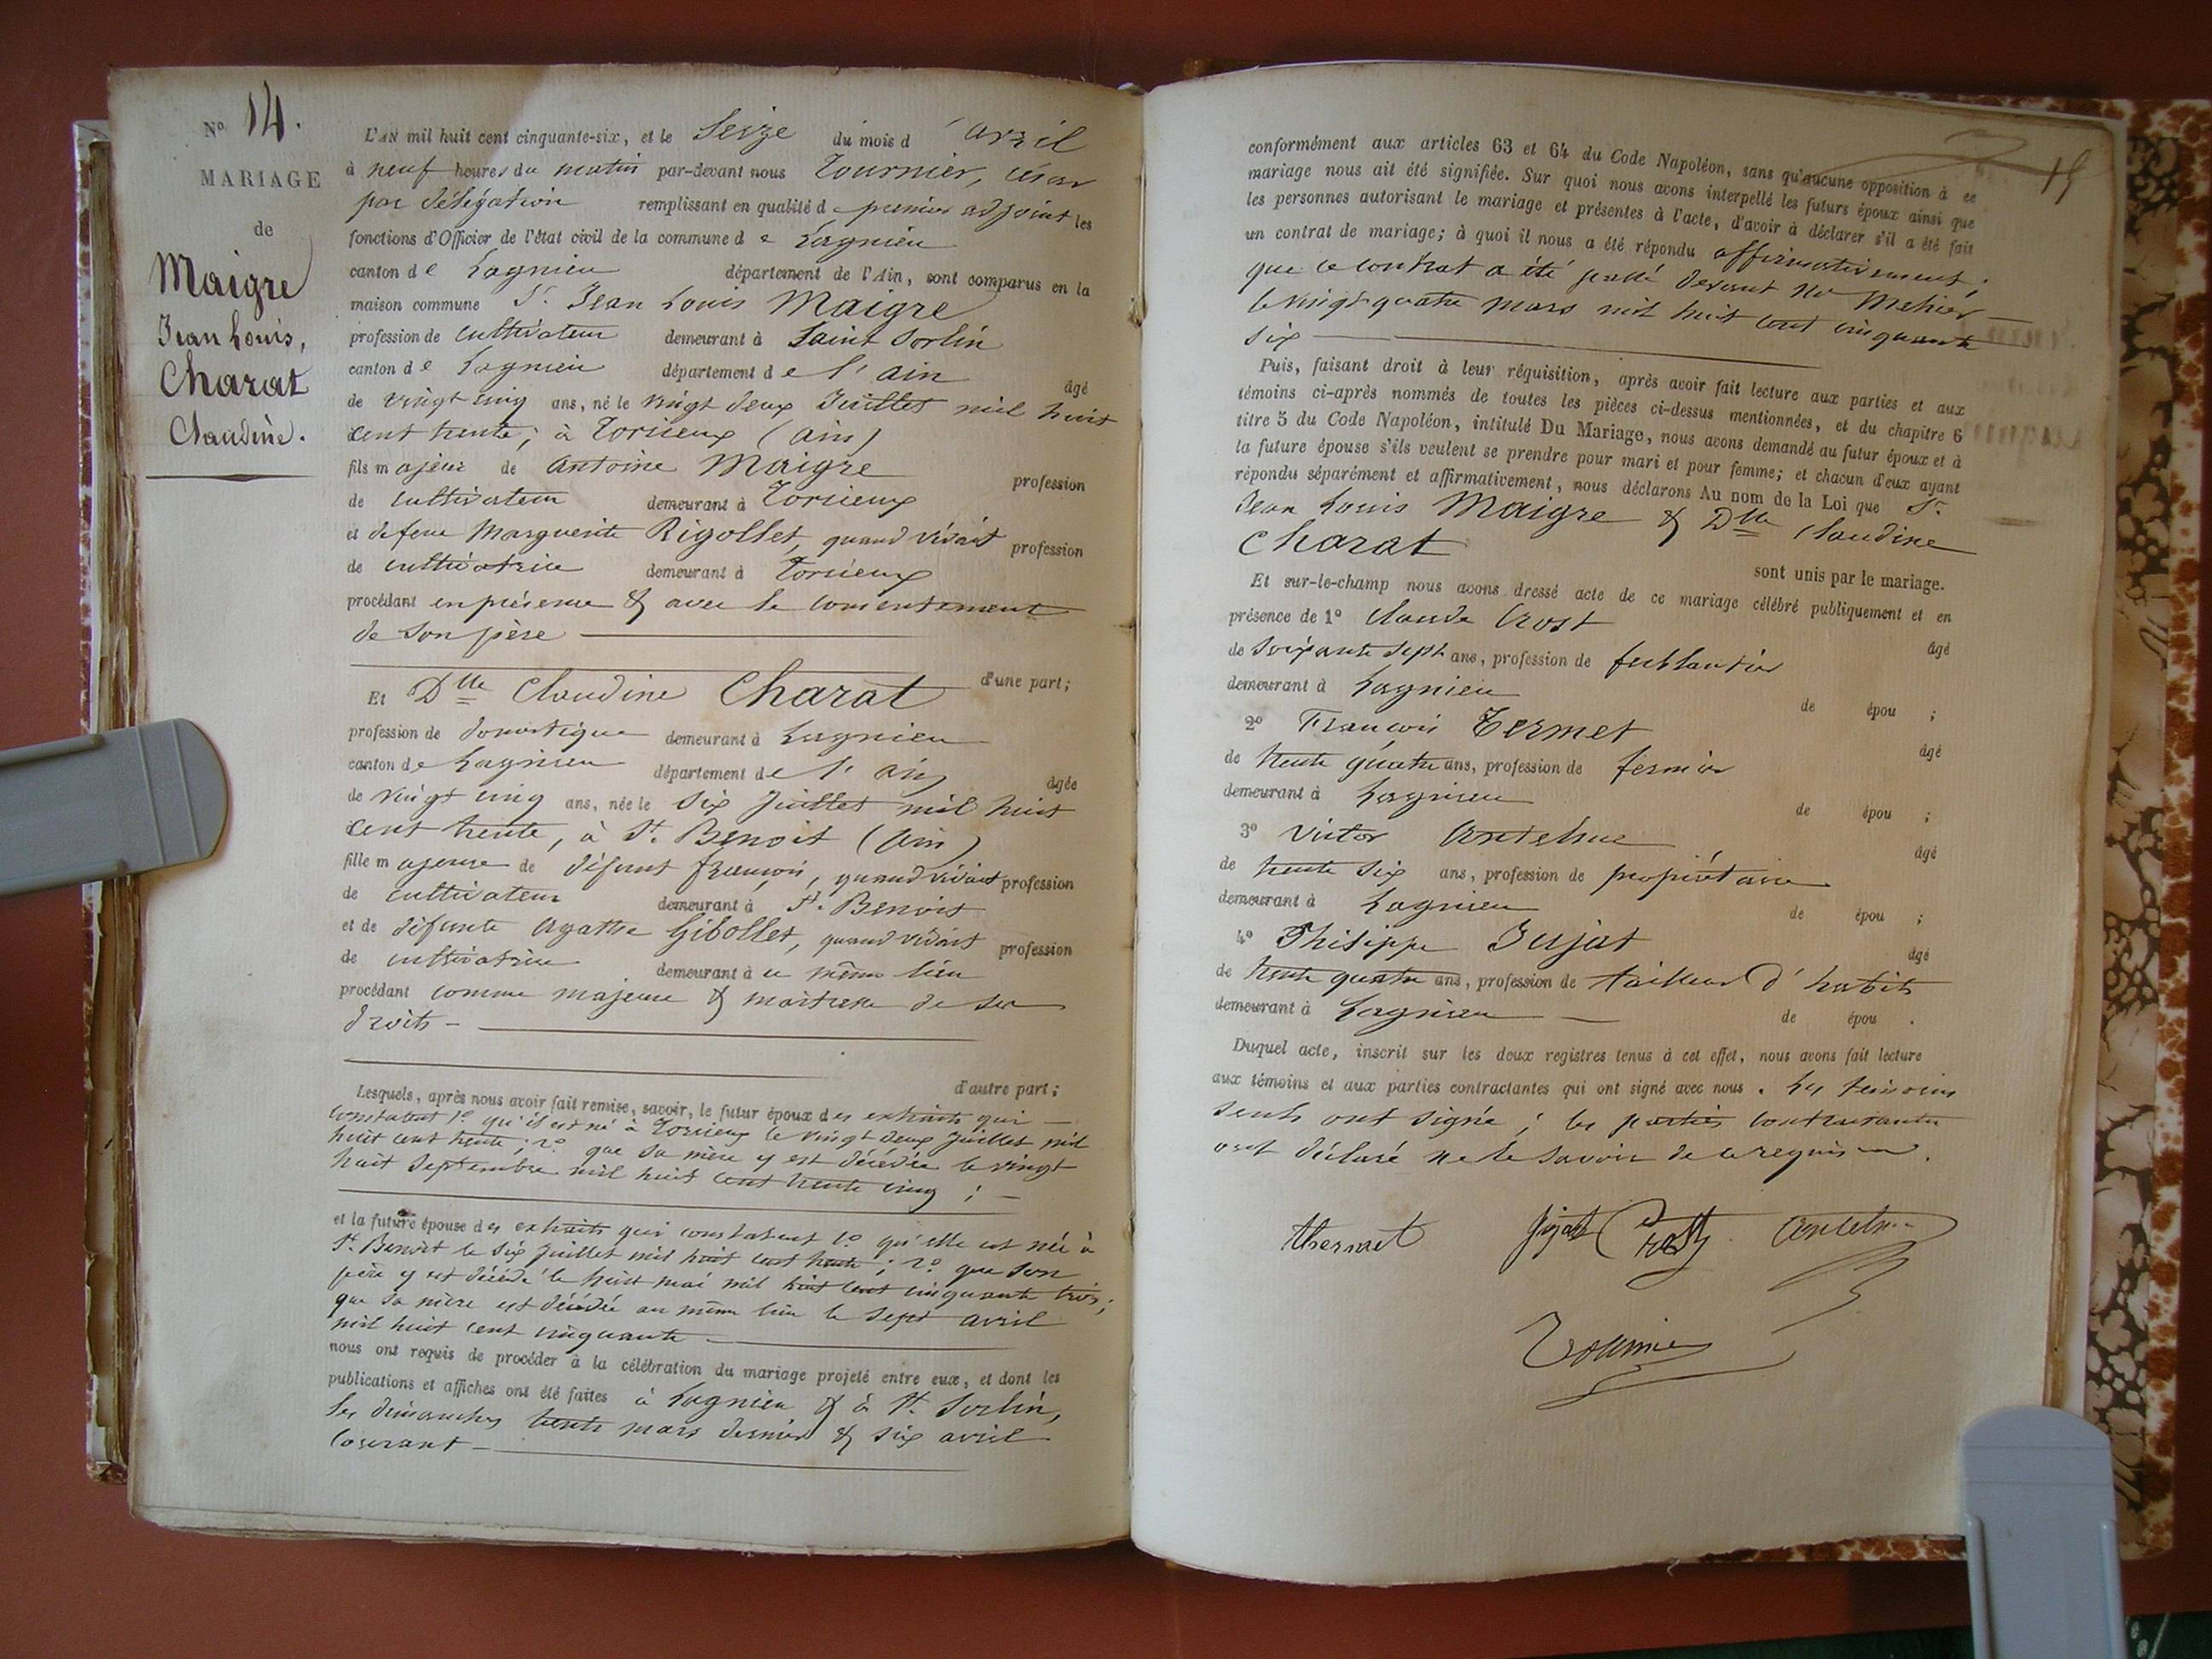 Nº 14.
MARIAGE
de
Maigre
Jean Louis,
Charat
Claudine.
L'AN mil huit cent cinquante-six, et le Seize du mois d'avril
à neuf heures du matin par-devant nous Tournier, César
par délégation remplissant en qualité de premier adjoint les
fonctions d'Officier de l'état civil de la commune de Lagnieu
canton de Lagnieu département de l'Ain, sont comparus en la
maison commune Sr. Jean Louis Maigre
profession de cultivateur demeurant à Saint Sorlin
canton de Lagnieu département de l'ain âgé
de vingt cinq ans, né le vingt deux Juillet mil huit
cent trente, à Torcieux (Ain)
fils majeur de Antoine Maigre profession
de cultivateur demeurant à Torcieux
et de feue Marguerite Rigollet, quand vivait profession
de cultivatrice demeurant à Torcieux
procédant en présence & avec le consentement
de son père
d'une part;
Et Dlle Claudine Charat
profession de domestique demeurant à Lagnieu
canton de Lagnieu département de l'ain âgée
de vingt cinq ans, née le six Juillet mil huit
cent trente, à St. Benoit (Ain)
fille majeure de défunt François, quand vivait profession
de cultivateur demeurant à St. Benoit
et de défunte Agathe Gibollet, quand vivait profession
de cultivatrice demeurant à ce même lieu
procédant comme majeure & maitresse de ses
droits -
d'autre part;
Lesquels, après nous avoir fait remise, savoir, le futur époux des extraits qui
constatent 1º qu'il est né à Torcieux le vingt deux Juillet mil
huit cent trente; 2º que sa mère y est décédée le vingt
huit Septembre mil huit cent trente cinq; -
et la future épouse des extraits qui constatent 1º qu'elle est née à
St. Benoit le six Juillet mil huit cent trente; 2º que son
père y est décédé le huit mai mil huit cent cinquante trois;
que sa mère est décédée au même lieu le sept avril
mil huit cent cinquante
nous ont requis de procéder à la célébration du mariage projeté entre eux, et dont les
publications et affiches ont été faites à Lagnieu & à St. Sorlin,
les dimanches trente mars dernier & six avril
courant -
15
conformément aux articles 63 et 64 du Code Napoléon, sans qu'aucune opposition à ce
mariage nous ait été signifiée. Sur quoi nous avons interpellé les futurs époux ainsi que
les personnes autorisant le mariage et présentes à l'acte, d'avoir à déclarer s'il a été fait
un contrat de mariage; à quoi il nous a été répondu affirmativement;
que ce contrat a été passé devant Me
le vingt quatre mars mil huit cent cinquante
six
Puis, faisant droit à leur réquisition, après avoir fait lecture aux parties et aux
témoins ci-après nommés de toutes les pièces ci-dessus mentionnées, et du chapitre 6
titre 5 du Code Napoléon, intitulé Du Mariage, nous avons demandé au futur époux et à
la future épouse s'ils veulent se prendre pour mari et pour femme; et chacun d'eux ayant
répondu séparément et affirmativement, nous déclarons Au nom de la Loi que Sr.
Jean Louis Maigre & Dlle Claudine
Charat
sont unis par le mariage.
Et sur-le-champ nous avons dressé acte de ce mariage célébré publiquement et en
présence de 1º Claude Crost âgé
de soixante sept ans, profession de ferblantier
demeurant à Lagnieu de épou ;
2º François Termet âgé
de trente quatre ans, profession de fermier
demeurant à Lagnieu de épou ;
3º Victor Anthelme âgé
de trente six ans, profession de propriétaire
demeurant à Lagnieu de épou ;
4º Philippe Jujat âgé
de trente quatre ans, profession de tailleur d'habits
demeurant à Lagnieu - de épou .
Duquel acte, inscrit sur les deux registres tenus à cet effet, nous avons fait lecture
aux témoins et aux parties contractantes qui ont signé avec nous. Les témoins
seuls ont signé; les parties contractantes
ont déclaré ne le savoir de ce requis
Jujat Crost
Tournier